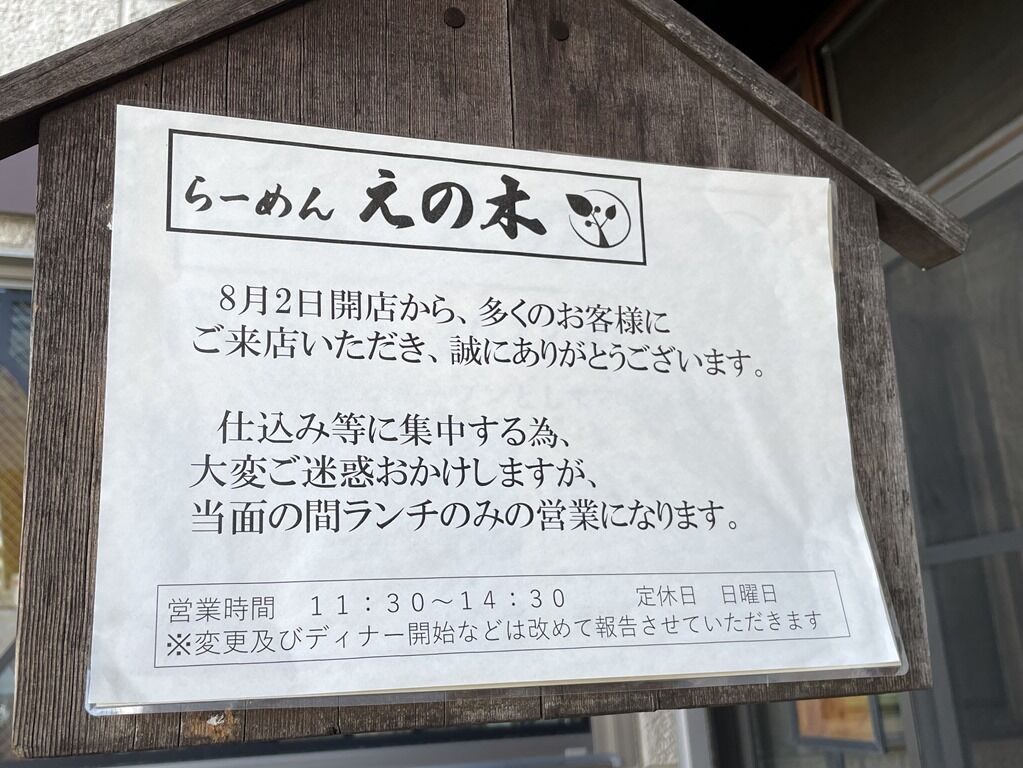 らーめん えの木
8月2日開店から、多くのお客様に
ご来店いただき、誠にありがとうございます。
仕込み等に集中する為、
大変ご迷惑おかけしますが、
当面の間ランチのみの営業になります。
営業時間 11：30～14：30 定休日 日曜日
※変更及びディナー開始などは改めて報告させていただきます